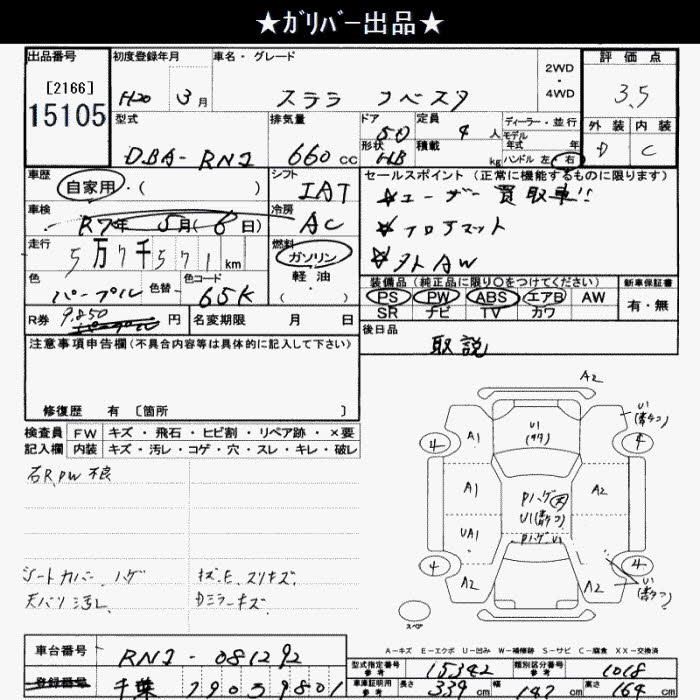 ★ガリバー出品★
出品番号
[2166]
15105
初度登録年月
H20 3月
車名・グレード
ステラ リベスタ
2WD
・
4WD
評価点
3.5
外装 内装
D C
型式
DBA-RN1
排気量
660 cc
ドア
5D
形状
HB
定員
4 人
積載
kg
ディーラー・並行
モデル
年式 年
ハンドル 左・右
車歴
自家用・( )
シフト
IAT
車検
R7年 5月(6日)
冷房
AC
走行
5万7千571km
燃料
ガソリン
・
軽油
( )
色
パープル
色替
色コード
65K
R券 9,850 円
名変期限 月 日
セールスポイント(正常に機能するものに限ります)
☆ユーザー買取車!!
☆フロアマット
☆外AW
装備品(純正品に限り○をつけてください)
PS PW ABS エアB AW
SR ナビ TV カワ
新車保証書
有・無
後日品
取説
注意事項申告欄(不具合内容等は具体的に記入して下さい)
修復歴 有 〔箇所 〕
検査員 FW キズ・飛石・ヒビ割・リペア跡・×要
記入欄 内装 キズ・汚レ・コゲ・穴・スレ・キレ・破レ
右R,PW不良
シートカバー、ハゲ
天バリ汚レ
Dミラーキズ
A2
U1
A1
U1
4
4
A1
A2
UA1
4
4
A2
A2
U1
スペア
A-キズ E-エクボ U-凹み W-補修跡 S-サビ C-腐食 XX-交換済
車台番号
RN1-081292
登録番号
千葉
型式指定番号
参考
15342
類別区分番号
参考
1018
車庫証明用
参考
長さ 339 cm
幅 147 cm
高さ 164 cm